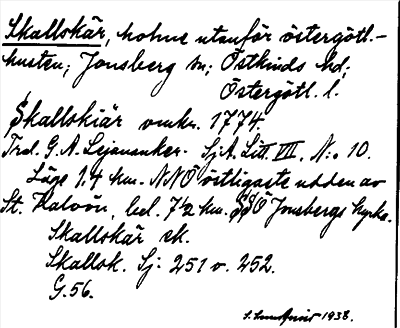 Skallskär, holme utanför östergötl.-
kusten; Jonsberg sn; Östkinds hd;
Östergötl. l.
Skallskiär omkr. 1774
Trol. G. A. Lejonanker. SjA. Litt. VII, N:o 10.
Läge 1.4 km. NNÖ östligaste udden av
St. Kalvön, bel. 7½ km. SSÖ Jonsbergs kyrka.
Skallskär sk.
Skallsk. Sj. 251 o. 252.
G.56.
1938.